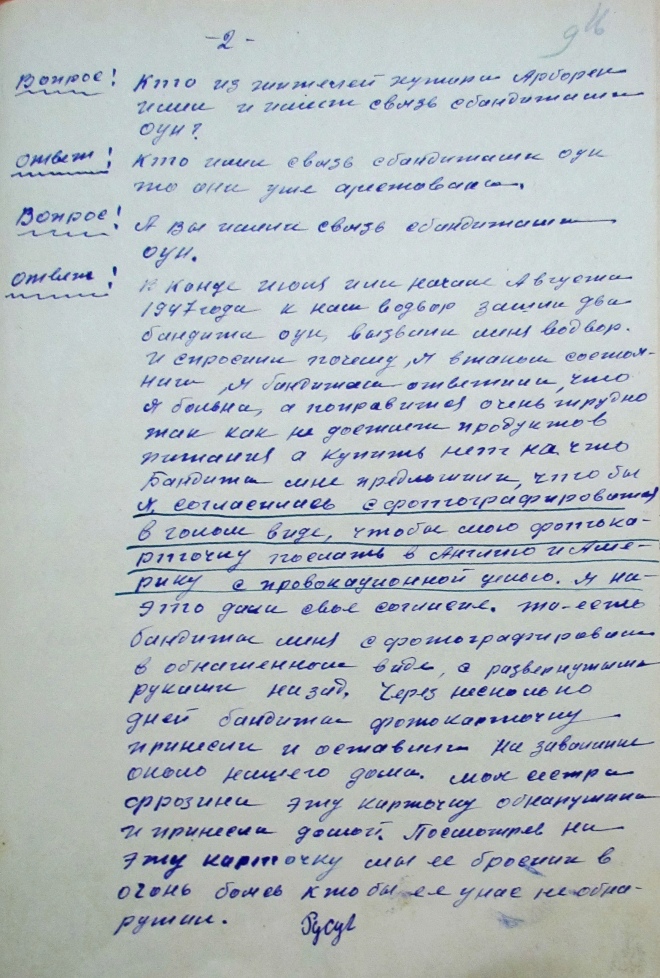 -2-
9И
Вопрос! Кто из жителей хутина Арборен
имии и имеют связь сбандитами
оун?
Ответ! Кто имии связь сбандитами оун
то они уже арестованы.
Вопрос! А Вы имели связь сбандитами
оун.
Ответ! В Конце июля или начале Августа
1947 года к нам водвор зашли два
бандита оун, вызвали меня водвор.
И спросили почему, Я втаком состоя-
нии, Я бандитам ответила, что
Я больна, а поправится очень трудно
так как не достает продуктов
питания а купить нет на что
Бандиты мне предложили, что бы
Я согласилась сфотографироватся
в голом виде, чтобы мою фотока-
рточку послать в Англию и Аме-
рику с провокационной целью. Я на-
это дала свое согласие. то-есть
бандиты меня сфотографировали
в обнаженном виде, с развернутыми
руками назад. Через несколько
дней бандиты фотокарточку
принесли и оставили на завалинке
около нашего дома. моя сестра
Фрозина эту карточку обнапужила
и принесла домой. Посмотрев на
эту карточку мы ее бросили в
огонь боясь кто бы ее унас не обна-
ружил.
Русул